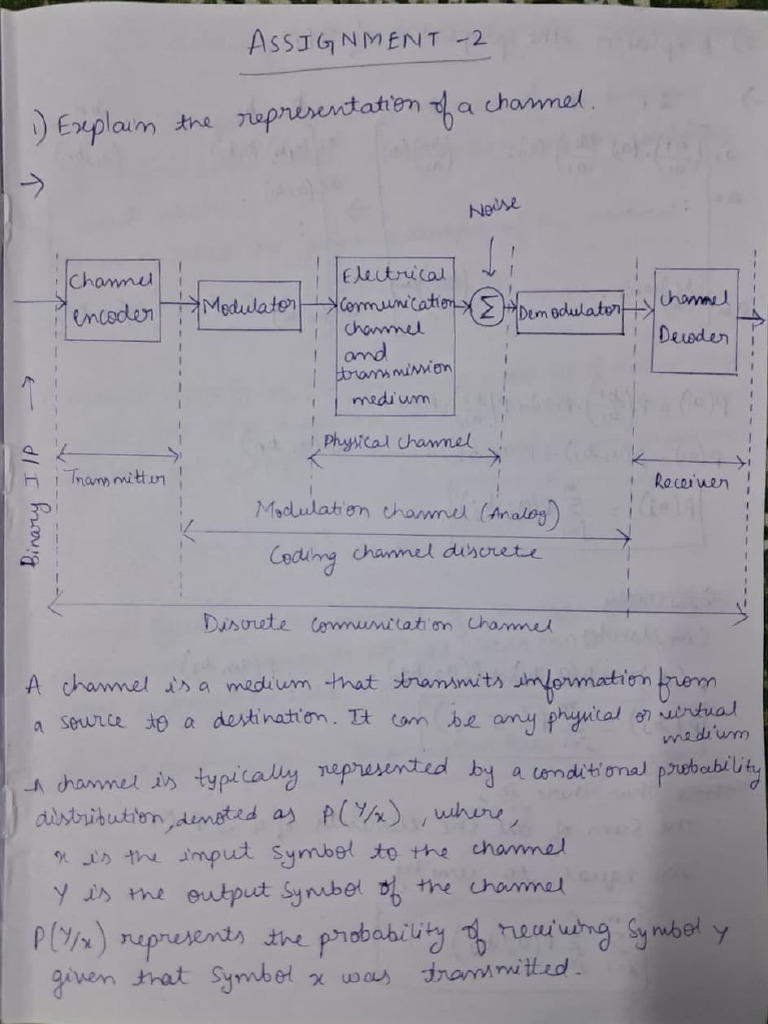 ASSIGNMENT -2
1) Explain the representation of a channel.
→
Noise
Channel encoder
Modulator
Electrical communication channel and transmission medium
Σ
Demodulator
Channel Decoder
Binary I/P →
Transmitter
Physical channel
Receiver
Modulation channel (Analog)
Coding channel discrete
Discrete communication channel
A channel is a medium that transmits information from
a source to a destination. It can be any physical or virtual
medium
A channel is typically represented by a conditional probability
distribution, denoted as P(Y/x), where,
x is the input symbol to the channel
Y is the output symbol of the channel
P(Y/x) represents the probability of receiving symbol y
given that symbol x was transmitted.